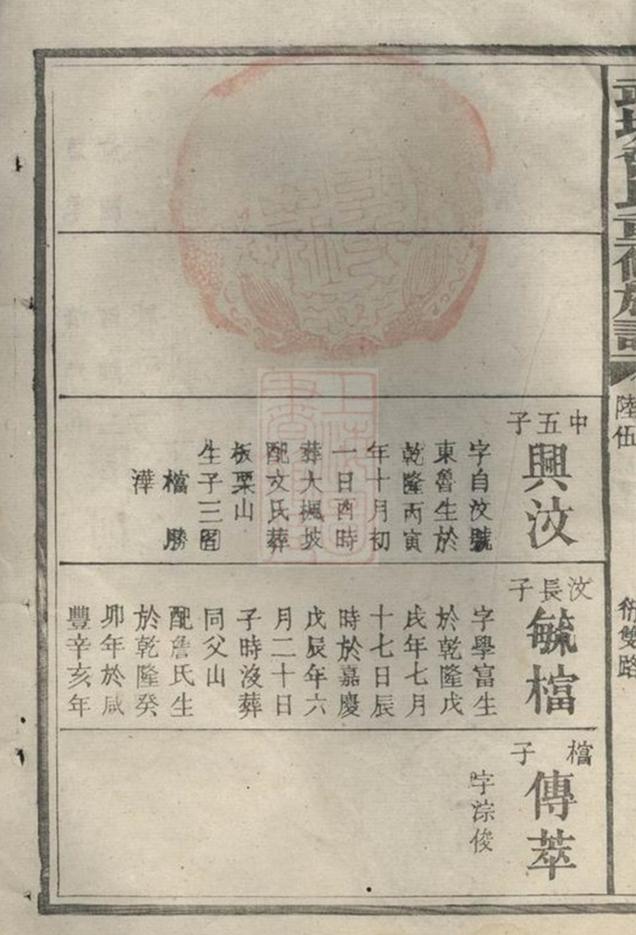 氏重修族譜
陸伍
衍雙路
中五子
興汶
字自汶號
東魯生於
乾隆丙寅
年十月初
一日酉時
葬大楓坡
配文氏葬
板栗山
生子三
檔 勝
澕
汶長子
毓檔
字學富生
於乾隆戊
戌年七月
十七日辰
時於嘉慶
戊辰年六
月二十日
子時沒葬
同父山
配詹氏生
於乾隆癸
卯年於咸
豐辛亥年
檔子
傳萃
字淙俊